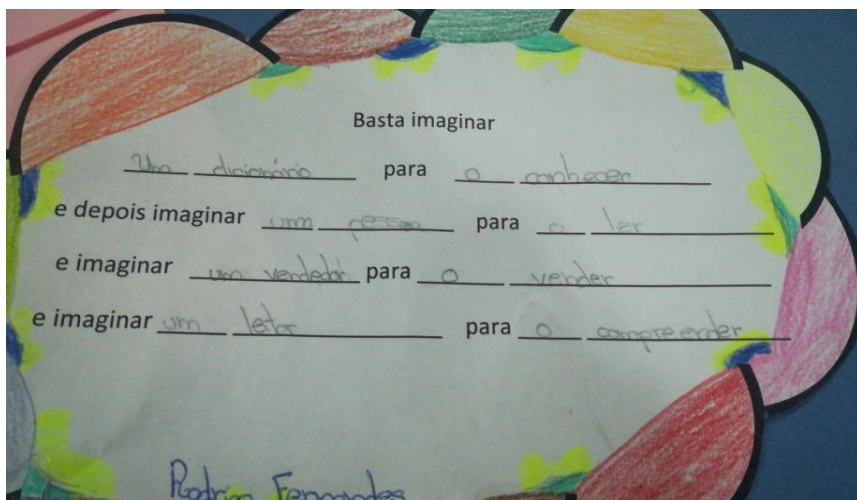 Basta imaginar
Um dicionário para o conhecer
e depois imaginar um pessoa para o ler
e imaginar um vendedor para o vender
e imaginar um leitor para o compreender
Rodrigo Fernandes